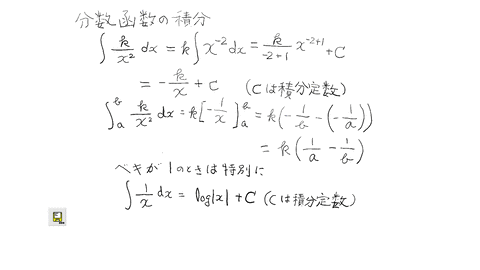 分数函数の積分
∫ k/x² dx = k∫x⁻²dx = k/(-2+1) x⁻²⁺¹ + C
= -k/x + C (Cは積分定数)
∫ₐᵇ k/x² dx = k[-1/x]ₐᵇ = k(-1/b - (-1/a))
= k(1/a - 1/b)
ベキが1のときは特別に
∫ 1/x dx = log|x| + C (Cは積分定数)